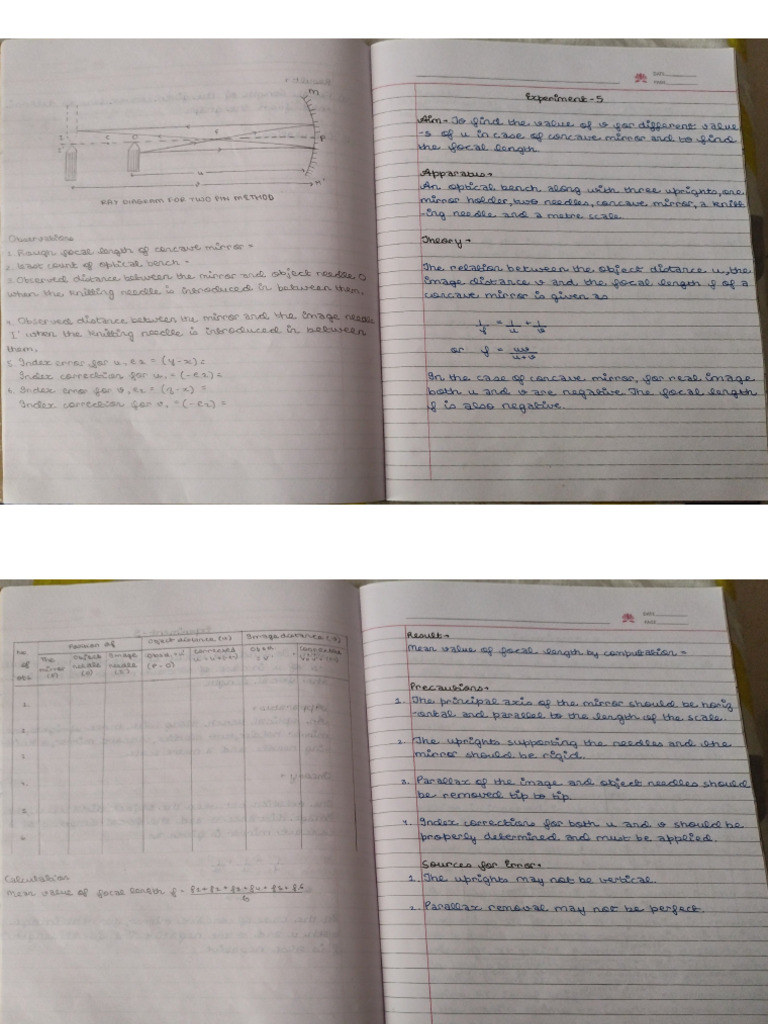 M
I
I'
C
O
c
P
u
v
M'
RAY DIAGRAM FOR TWO PIN METHOD
Observations
1. Rough focal length of concave mirror =
2. Least count of optical bench =
3. Observed distance between the mirror and object needle O
when the knitting needle is introduced in between them,
4. Observed distance between the mirror and the image needle
I' when the knitting needle is introduced in between
them,
5. Index error for u, e2 = (y-x) =
Index correction for u, = (-e2) =
6. Index error for v, e2 = (z-x) =
Index correction for v, = (-e2) =
DATE
PAGE
Experiment-5
Aim- To find the value of v for different value
-s of u in case of concave mirror and to find
the focal length
Apparatus-
An optical bench along with three uprights, one
mirror holder, two needles, concave mirror, a knitt
-ing needle and a metre scale
Theory -
The relation between the object distance u, the
image distance v and the focal length f of a
concave mirror is given as
1/f = 1/u + 1/v
or f = uv/u+v
In the case of concave mirror, for real image
both u and v are negative. The focal length
f is also negative.
No of obs
Position of
Object distance (u)
Image distance (v)
The mirror (P)
Object needle (O)
Image needle (I')
(P-O)
1.
2.
3.
4.
5.
6.
Calculation
Mean value of focal length f = f1+f2+f3+f4+f5+f6/6
DATE
PAGE
Result-
Mean value of focal length by computation =
Precautions-
1. The principal axis of the mirror should be horiz
-ontal and parallel to the length of the scale.
2. The uprights supporting the needles and the
mirror should be rigid.
3. Parallax of the image and object needles should
be removed tip to tip.
4. Index corrections for both u and v should be
properly determined and must be applied.
Sources for Error-
1. The uprights may not be vertical.
2. Parallax removal may not be perfect.